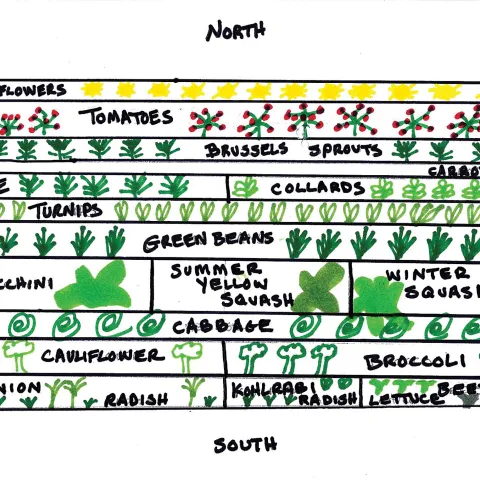 NORTH
FLOWERS
TOMATOES
BRUSSELS SPROUTS
CARROT
E COLLARDS
TURNIPS
GREEN BEANS
CCHINI
SUMMER
YELLOW
SQUASH
WINTER
SQUASH
CABBAGE
CAULIFLOWER BROCCOLI
NION
RADISH
KOHLRABI
RADISH
LETTUCE
BEE
SOUTH